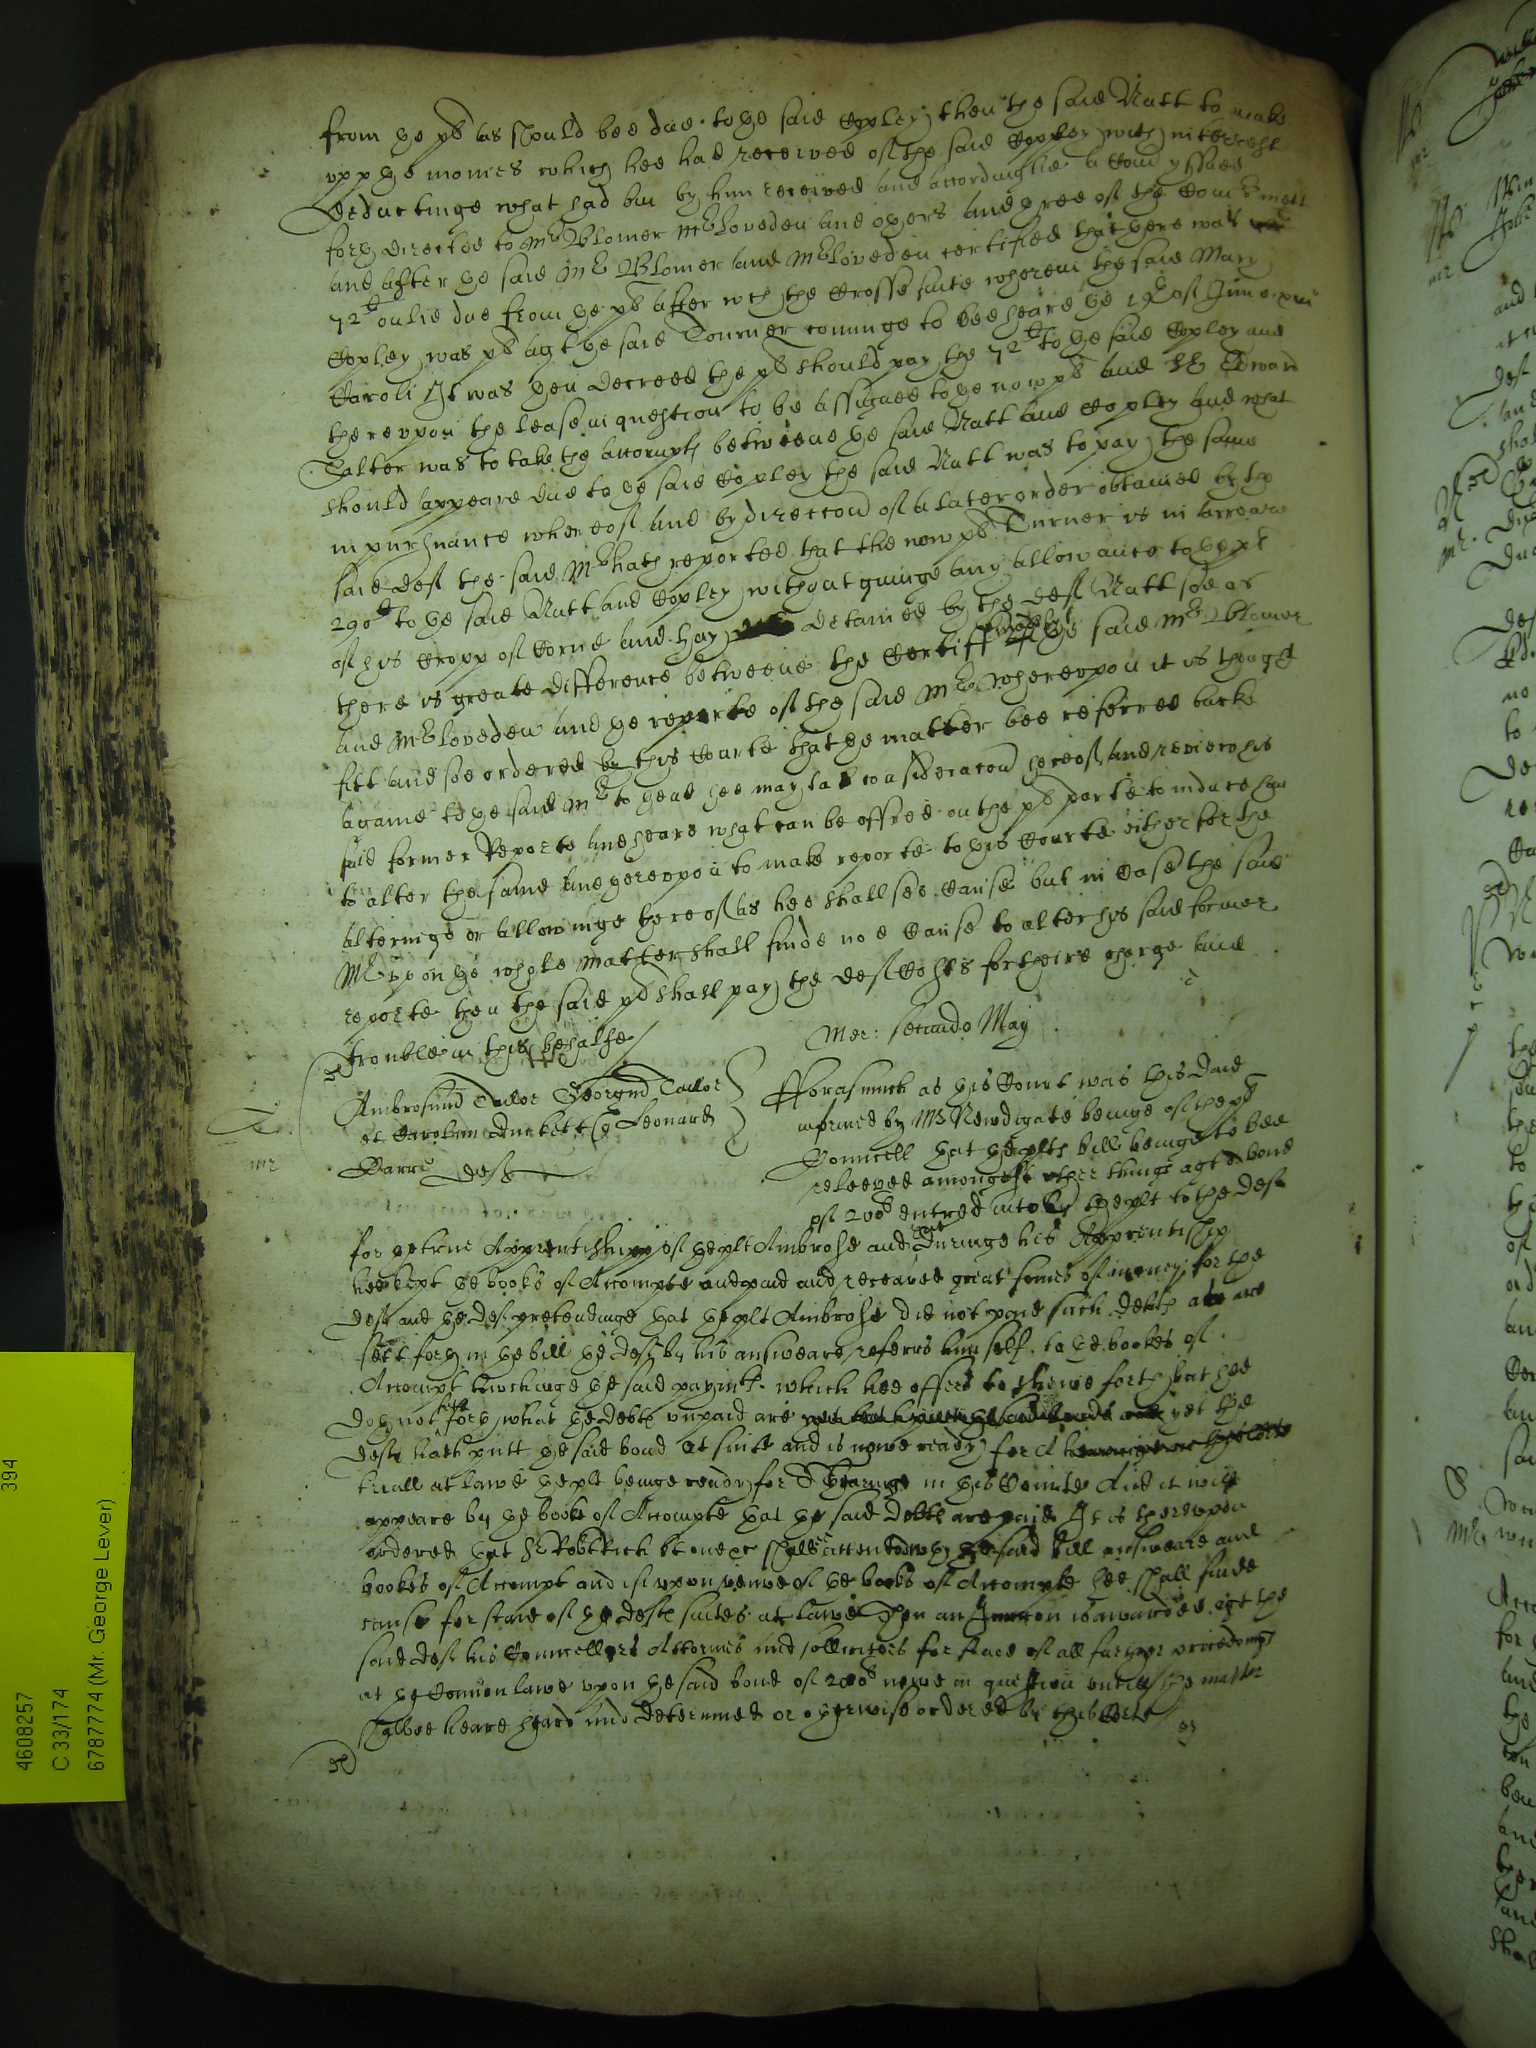 from ye pt as should bee due to ye said Copley then the said Natt to make
upp ye monies which hee had received of the said Copley with interrest
deductinge what had bin by him received and accordinglie a Com yssued
forth directed to Mr Blomer Mr Loveden and others and three of the Comrs mett
and after ye said Mr Blomer and Mr Loveden certified that there was
72l onlie due from ye pt after wch the Crosse suite wherein the said Mary
Copley was pt agt ye said Tourner cominge to bee heard ye of June
Caroli It was then decreed the pt should pay the 72l to ye said Copley and
thereupon the lease in question to be assigned to ye now pt and Sr Edward
Salter was to take the accompth betweene ye said Natt and Copley and what
should appeare due to ye said Copley the said Natt was to pay the same
in pursuance whereof and by direccon of a later order obtained by the
said deft the said Mr hath reported that the now pt Turner is in arreare
290l to ye said Natt and Copley without guinge any allowance to ye pt
of his Cropp of Corne and hay detained by the deft Natt soe as
there is greate difference betweene the Certiff of ye said Mr Blomer
and Mr Loveden and ye reporte of the said Mr whereupon it is thought
fitt and soe ordered by this Courte that ye matter bee referred backe
againe to ye said Mr to thend hee may take consideracon thereof and review his
said former Reporte and heare what can be offred on the pt parte to induce him
to alter the same and thereupon to make reporte to this Courte either for the
alteringe or allowinge thereof as hee shall see cause but in Case the said
Mr upon ye whole matter shall finde noe Cause to alter his said former
reporte then the said pt shall pay the deft Costs for theire charge and
trouble in this behalfe
Mer: secundo May
Ambrosius Tailor Georgius Tailor
et Duckett Leonard
Barre deft
Forasmuch as this Court was this daie
informed by Mr Newdigate beinge of the pt
Councell that the plts bill beinge to bee
releeved amongest other things agt a bond
of 200l entred into by the plt to the deft
for ye true Apprentishipp of ye plt Ambrose and that duringe his Apprentiship
hee kept ye books of Accompte and paid and receaved great somes of money for the
deft and ye deft pretendinge that ye plt Ambrose did not paie such debts as are
sett forth in ye bill ye deft by his answeare referrs him self to ye bookes of
Accompt touchinge ye said paymts which hee offers to shewe forth but hee
doth not sett forth what ye debts unpaid are yet the
deft hath putt ye said bond at suite and is nowe ready for a
triall at lawe ye plt beinge ready for a hearinge in this Courte And it will
appeare by ye booke of Accompte that ye said debts are paid It is thereupon
ordered that Sr Robt Rich kt one &c shalbe attended wth ye said bill answeare and
bookes of Accompt and if upon viewe of ye books of Accompte hee shall finde
cause for staie of ye defts suites at lawe Then an Iniunccon is awarded agt the
said deft his Councellors Attornies and sollicitors for staie of all further proceedings
at ye Comon lawe upon ye said bond of 200l nowe in question untill ye matter
shalbee heare heard and determined or otherwise ordered by this Corte
4608257 394
C 33/174
6787774 (Mr. George Lever)